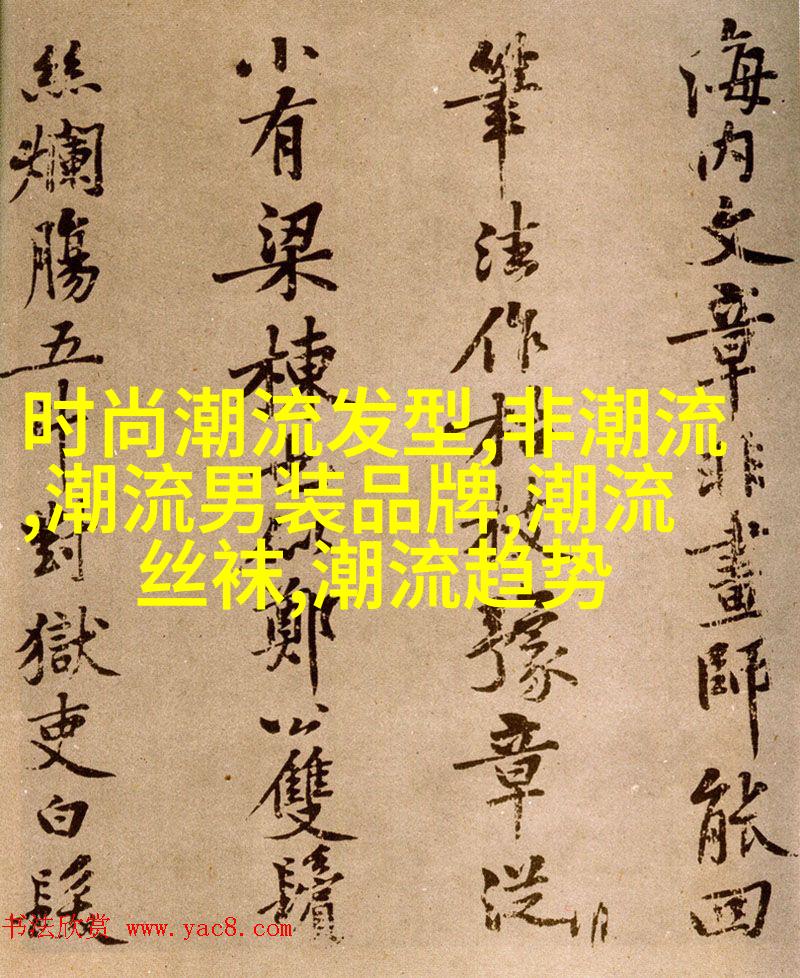 海内文章非畫師能回
筆法作枯枝豫章從
小有梁棟也似鄭公雙鬢
絲爛腸五斗對獄吏白髮
时尚潮流发型,非潮流
,潮流男装品牌,潮流
丝袜,潮流趋势
书法欣赏 www.yac8.com